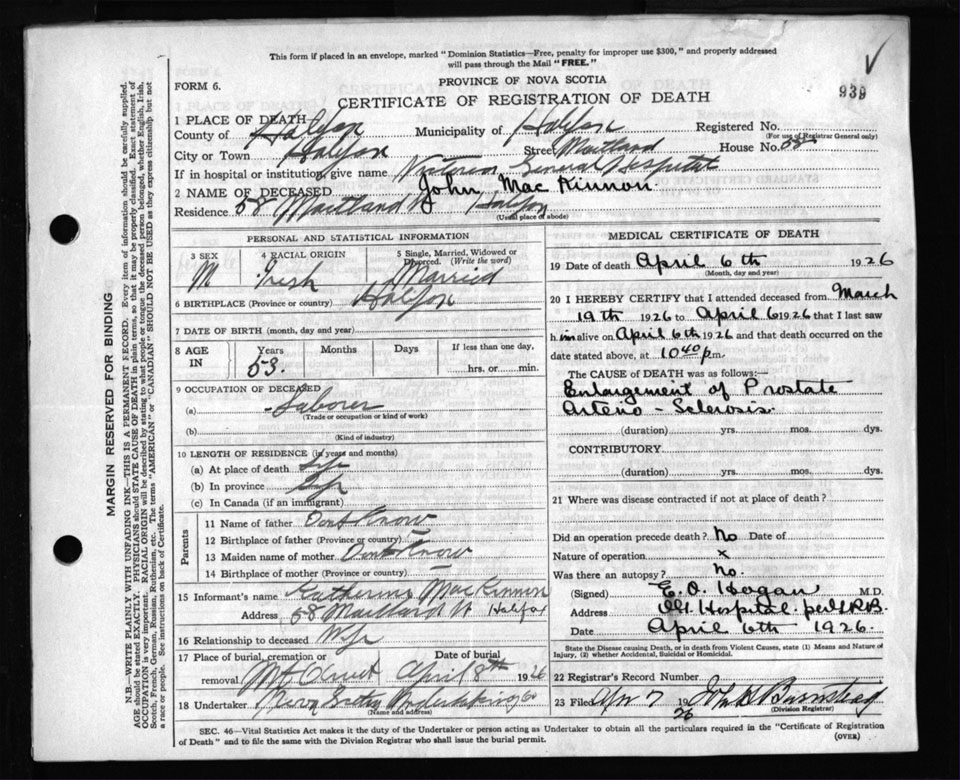 This form if placed in an envelope, marked "Dominion Statistics—Free, penalty for improper use $300," and properly addressed
will pass through the Mail "FREE."
PROVINCE OF NOVA SCOTIA
FORM 6.
939
CERTIFICATE OF REGISTRATION OF DEATH
1 PLACE OF DEATH
County of Halifax Municipality of Halifax Registered No.
(For use of Registrar General only)
City or Town Halifax Street Maitland House No. 58
If in hospital or institution, give name Victoria General Hospital
2 NAME OF DECEASED John MacKinnon
Residence 58 Maitland St Halifax
(Usual place of abode)
PERSONAL AND STATISTICAL INFORMATION
3 SEX M
4 RACIAL ORIGIN Irish
5 Single, Married, Widowed or Divorced (Write the word) Married
6 BIRTHPLACE (Province or country) Halifax
7 DATE OF BIRTH (month, day and year)
8 AGE IN Years 53. Months Days If less than one day, hrs. or min.
9 OCCUPATION OF DECEASED
(a) Laborer
(Trade or occupation or kind of work)
(b)
(Kind of industry)
10 LENGTH OF RESIDENCE (in years and months)
(a) At place of death Life
(b) In province Life
(c) In Canada (if an immigrant)
Parents
11 Name of father Dont Know
12 Birthplace of father (Province or country)
13 Maiden name of mother Dont Know
14 Birthplace of mother (Province or country)
15 Informant's name Katherine MacKinnon
Address 58 Maitland St Halifax
16 Relationship to deceased Wife
17 Place of burial, cremation or removal Mt Olivet Date of burial April 8th 1926
18 Undertaker Undertaking Co
(Name and address)
MEDICAL CERTIFICATE OF DEATH
19 Date of death April 6th 1926
(Month, day and year)
20 I HEREBY CERTIFY that I attended deceased from March
19th 1926 to April 6 1926 that I last saw
him alive on April 6th 1926 and that death occurred on
date stated above, at 10 40 p.m.
The CAUSE OF DEATH was as follows:—
Enlargement of Prostate
Arterio-Sclerosis.
(duration) yrs. mos. dys.
CONTRIBUTORY
(duration) yrs. mos. dys.
21 Where was disease contracted if not at place of death?
Did an operation precede death? No Date of
Nature of operation x
Was there an autopsy? No.
(Signed) E. O. Hagan M.D.
Address Hospital per
Date April 6th 1926.
State the Disease causing Death, or in death from Violent Causes, state (1) Means and Nature of
Injury, (2) whether Accidental, Suicidal or Homicidal.
22 Registrar's Record Number
23 Filed Apr 7 1926 John Barnstead
(Division Registrar)
SEC. 46—Vital Statistics Act makes it the duty of the Undertaker or person acting as Undertaker to obtain all the particulars required in the "Certificate of Registration
of Death" and to file the same with the Division Registrar who shall issue the burial permit.
(OVER)
MARGIN RESERVED FOR BINDING
N.B.—WRITE PLAINLY WITH UNFADING INK—THIS IS A PERMANENT RECORD. Every item of information should be carefully supplied.
AGE should be stated EXACTLY. PHYSICIANS should STATE CAUSE OF DEATH in plain terms, so that it may be properly classified. Exact statement of
OCCUPATION is very important. RACIAL ORIGIN will be described by stating to what people or tongue the deceased person belonged, whether English, Irish,
Scotch, French, German, Russian, Ruthenian, etc. The terms "AMERICAN" or "CANADIAN" SHOULD NOT BE USED as they express citizenship but not
a race or people. See instructions on back of Certificate.